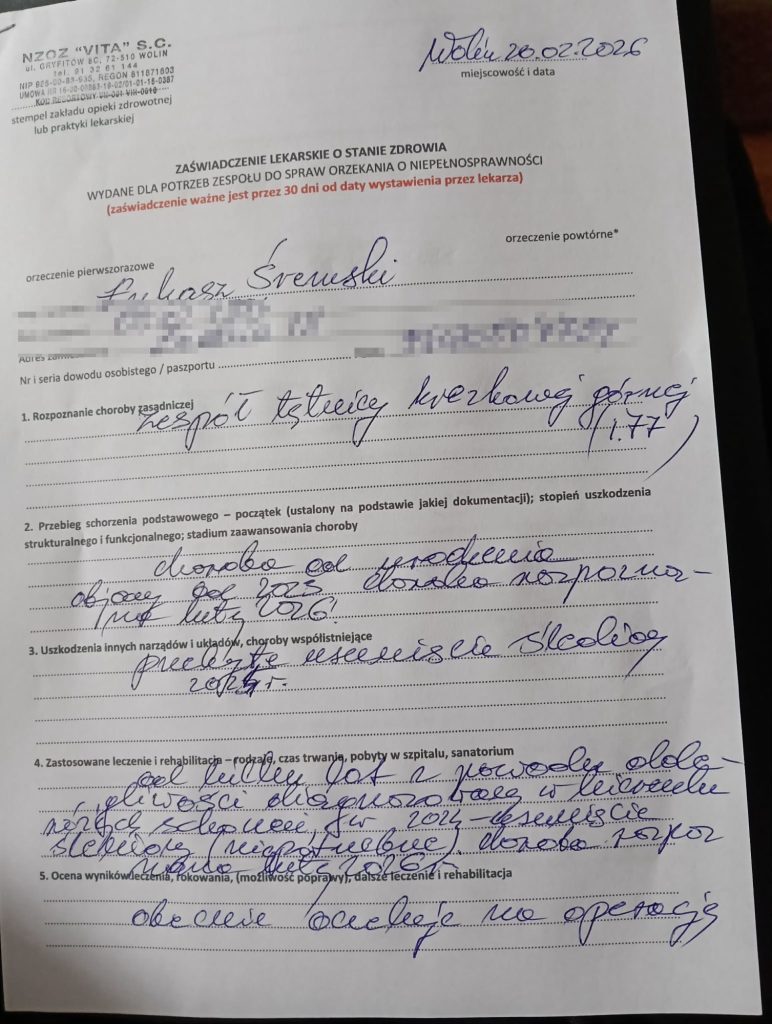 NZOZ "VITA" S.C.
ul. GRYFITÓW 8C, 72-510 WOLIN
tel. 91 32 61 144
REGON 811871603
stempel zakładu opieki zdrowotnej
lub praktyki lekarskiej
Wolin 20.02.2026
miejscowość i data
ZAŚWIADCZENIE LEKARSKIE O STANIE ZDROWIA
WYDANE DLA POTRZEB ZESPOŁU DO SPRAW ORZEKANIA O NIEPEŁNOSPRAWNOŚCI
(zaświadczenie ważne jest przez 30 dni od daty wystawienia przez lekarza)
orzeczenie pierwszorazowe
orzeczenie powtórne*
Łukasz Śremski
Nr i seria dowodu osobistego / paszportu
1. Rozpoznanie choroby zasadniczej
zespół tętnicy krezkowej górnej
(I.77)
2. Przebieg schorzenia podstawowego – początek (ustalony na podstawie jakiej dokumentacji); stopień uszkodzenia
strukturalnego i funkcjonalnego; stadium zaawansowania choroby
choroba od urodzenia
objawy od 2023 choroba rozpozna-
na luty 2026!
3. Uszkodzenia innych narządów i układów, choroby współistniejące
przebyte usunięcie śledziony
r.
4. Zastosowane leczenie i rehabilitacja – rodzaje, czas trwania, pobyty w szpitalu, sanatorium
od kilku lat z powodu dole-
gliwości diagnozowany w kierunku
różnych schorzeń, w 2024 – usunięcie
śledziony (niepotrzebne) choroba rozpoz
nana luty 2026 r.
5. Ocena wyników leczenia, rokowania, (możliwość poprawy), dalsze leczenie i rehabilitacja
obecnie oczekuje na operację